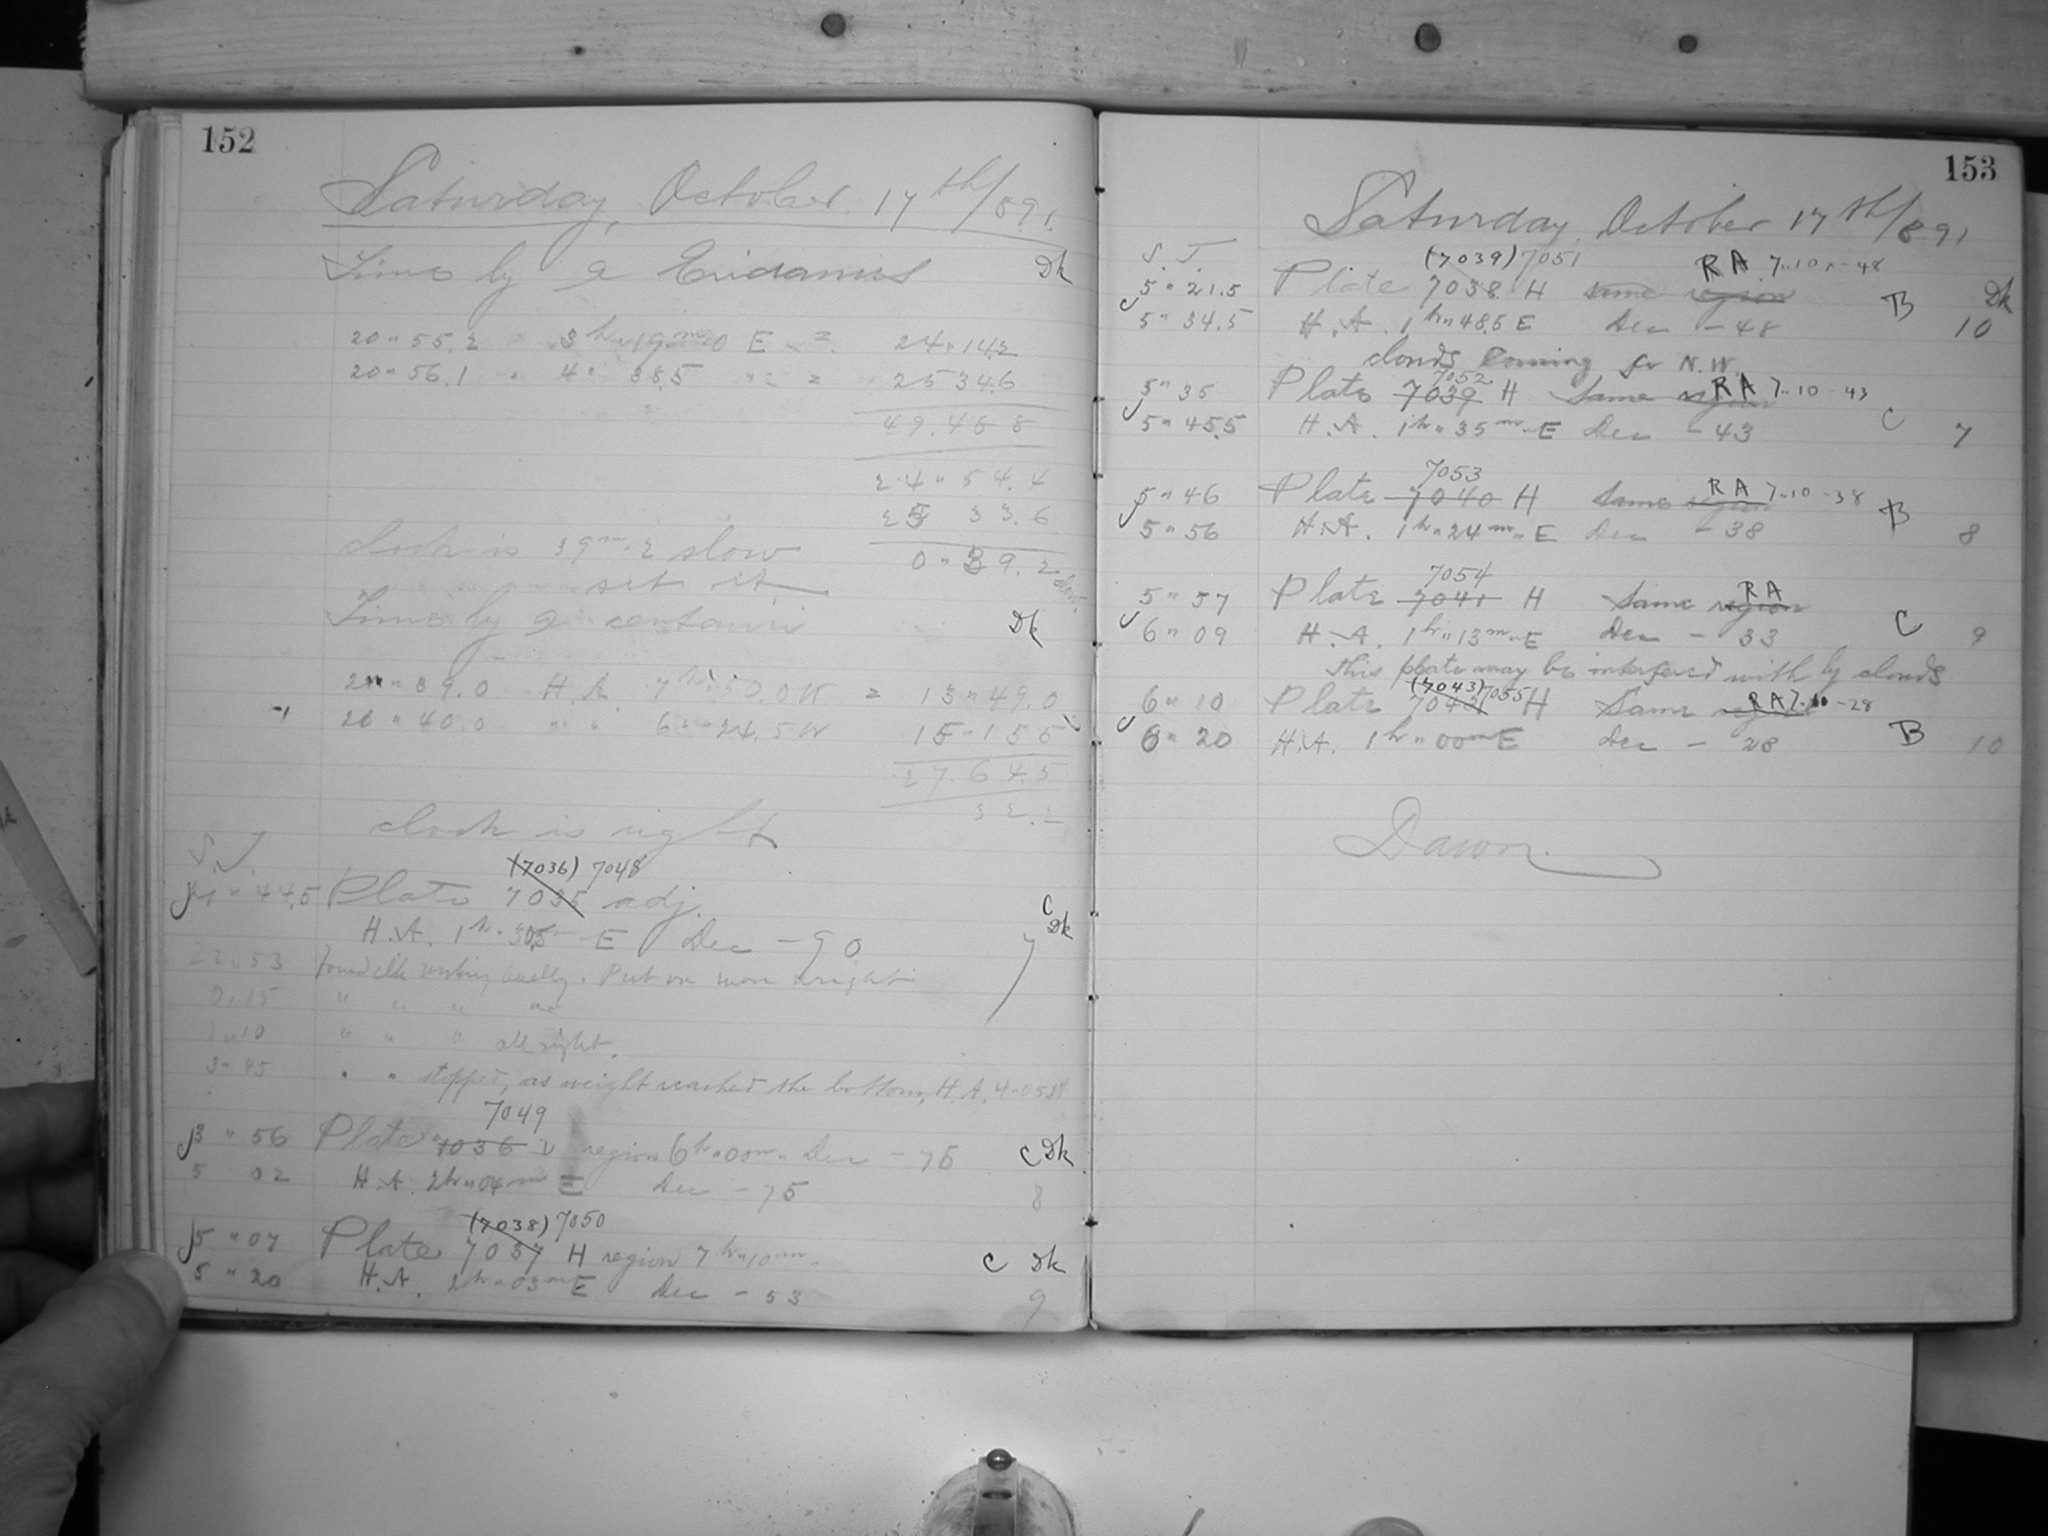 152
Saturday, October 17th/891.
Time by α Eridanus Dk
20"55.2 3h"19m.0 E = 24"14.2
20"56.1 " 4" 38.5 " = 25 34.6
49.48 8
24"54.4
25 33.6
clock is 39m.2 slow 0"39.2 slow
set it
Time by α centauri Dk
39.0 H.A. 7h 50.0 W = 13"49.0
-1 20"40.0 " " 6"24.5 W 15"15 5
27.64.5
32.2
clock is right
S.T. (7036) 7048
44.5 Plate 7035 adj. C
H.A. 1h"30.5m E Dec -90 Dk 7
22"53 found clk working badly. Put on more weight
0"15 " " " "
1"10 " " " all right.
3"45 " " stopped, as weight reached the bottom, H.A. 4"05
7049
3"56 Plate 7036 D region 6h"00m" Dec -75 C Dk
5 02 H.A. 2h"04m E Dec -75 8
(7038) 7050
5"07 Plate 7037 H region 7h"10m. C Dk
5"20 H.A. 2h"03m E Dec -53 9
153
Saturday, October 17th/891
S.T. (7039) 7051 RA 7..10 -48
5"21.5 Plate 7038 H same region B Dk
5"34.5 H.A. 1h"48.5 E Dec -48 10
clouds coming fr N.W.
7052
5"35 Plate 7039 H Same region RA 7..10 -43
5"45.5 H.A. 1h"35m"E Dec -43 C 7
7053
5"46 Plate 7040 H Same region RA 7..10 -38
5"56 H.A. 1h"24m"E Dec -38 B 8
7054
5"57 Plate 7041 H Same region RA
6"09 H.A. 1h"13m"E Dec - 33 C 9
this plate may be interfered with by clouds
(7043) 7055
6"10 Plate 7042 H Same region RA 7..10 -28
6"20 H.A. 1h"00m E Dec - 28 B 10
Dawn.